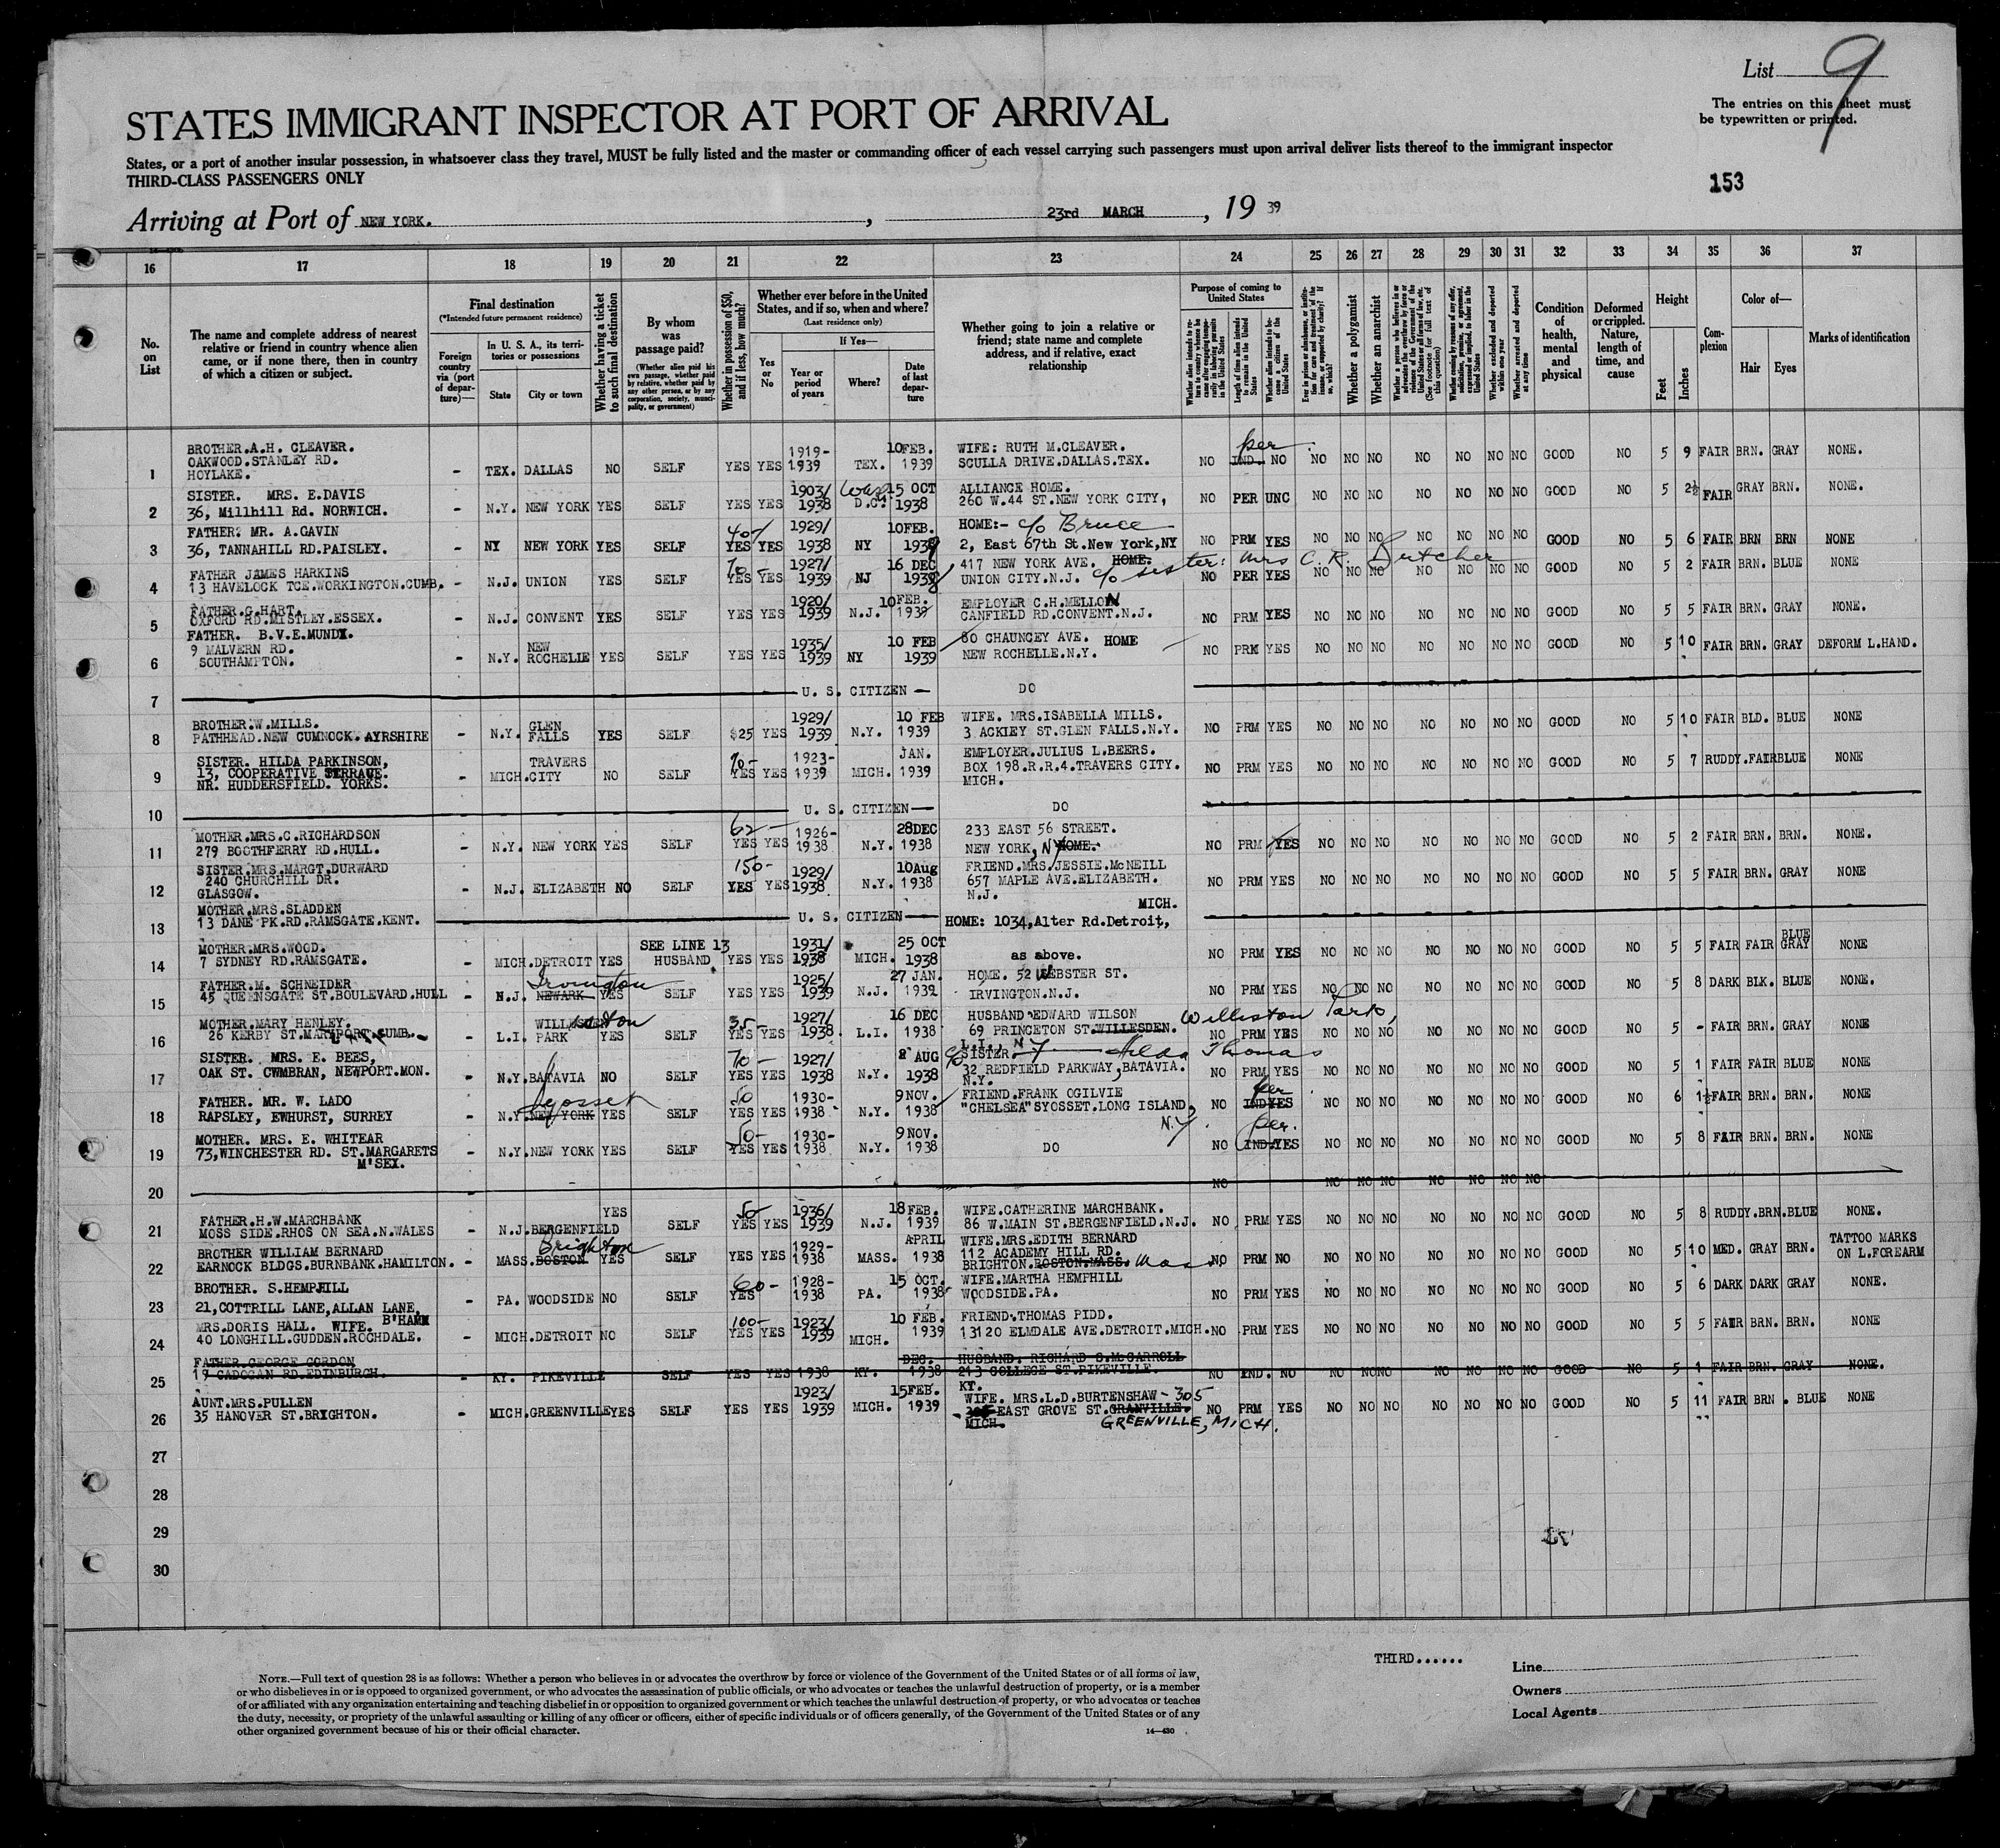 List 9
The entries on this sheet must
be typewritten or printed.
STATES IMMIGRANT INSPECTOR AT PORT OF ARRIVAL
States, or a port of another insular possession, in whatsoever class they travel, MUST be fully listed and the master or commanding officer of each vessel carrying such passengers must upon arrival deliver lists thereof to the immigrant inspector
THIRD-CLASS PASSENGERS ONLY
153
Arriving at Port of NEW YORK. , 23rd MARCH , 19 39
16 17 18 19 20 21 22 23 24 25 26 27 28 29 30 31 32 33 34 35 36 37
No. on List
The name and complete address of nearest relative or friend in country whence alien came, or if none there, then in country of which a citizen or subject.
Final destination
(*Intended future permanent residence)
Foreign country via (port of departure)—
In U. S. A., its territories or possessions
State City or town
Whether having a ticket to such final destination
By whom was passage paid?
(Whether alien paid his own passage, whether paid by relative, whether paid by any other person, or by any corporation, society, municipality, or government)
Whether in possession of $50, and if less, how much?
Whether ever before in the United States, and if so, when and where?
(Last residence only)
Yes or No
If Yes—
Year or period of years
Where?
Date of last departure
Whether going to join a relative or friend; state name and complete address, and if relative, exact relationship
Purpose of coming to United States
Length of time alien intends to remain in the United States
Whether alien intends to become a citizen of the United States
Whether a polygamist
Whether an anarchist
Whether excluded and deported within one year
Whether arrested and deported at any time
Condition of health, mental and physical
Deformed or crippled. Nature, length of time, and cause
Height
Feet Inches
Complexion
Color of—
Hair Eyes
Marks of identification
1 BROTHER.A.H. CLEAVER. OAKWOOD.STANLEY RD. HOYLAKE. - TEX. DALLAS NO SELF YES YES 1919-1939 TEX. 10FEB. 1939 WIFE: RUTH M.CLEAVER. SCULLA DRIVE.DALLAS.TEX. NO IND. per NO NO NO NO NO NO NO NO GOOD NO 5 9 FAIR BRN. GRAY NONE.
2 SISTER. MRS. E.DAVIS 36, Millhill Rd. NORWICH. - N.Y. NEW YORK YES SELF YES YES 1903/1938 Wash D.C. 15 OCT 1938 ALLIANCE HOME. 260 W.44 ST.NEW YORK CITY, NO PER UNC NO NO NO NO NO NO NO GOOD NO 5 2½ FAIR GRAY BRN. NONE.
3 FATHER: MR. A.GAVIN 36, TANNAHILL RD.PAISLEY. - NY NEW YORK YES SELF 40- YES YES 1929/1938 NY 10FEB. 1939 HOME:- c/o Bruce 2, East 67th St.New York,NY NO PRM YES NO NO NO NO NO NO NO GOOD NO 5 6 FAIR BRN BRN NONE
4 FATHER JAMES HARKINS 13 HAVELOCK TCE.WORKINGTON.CUMB. - N.J. UNION YES SELF 70- YES YES 1927/1939 NJ 16 DEC 1938 417 NEW YORK AVE. HOME. UNION CITY.N.J. c/o sister: Mrs C. R. Butcher NO PER YES NO NO NO NO NO NO NO GOOD NO 5 2 FAIR BRN. BLUE NONE
5 FATHER.G.HART. OXFORD RD.MISTLEY.ESSEX. - N.J. CONVENT YES SELF YES YES 1920/1939 N.J. 10FEB. 1939 EMPLOYER C.H.MELLON CANFIELD RD.CONVENT.N.J. NO PRM YES NO NO NO NO NO NO NO GOOD NO 5 5 FAIR BRN. GRAY NONE.
6 FATHER. B.V.E.MUNDY. 9 MALVERN RD. SOUTHAMPTON. - N.Y. NEW ROCHELLE YES SELF YES YES 1935/1939 NY 10 FEB 1939 80 CHAUNCEY AVE. HOME NEW ROCHELLE.N.Y. NO PRM YES NO NO NO NO NO NO NO GOOD NO 5 10 FAIR BRN. GRAY DEFORM L.HAND.
7 U. S. CITIZEN — DO
8 BROTHER.W.MILLS. PATHHEAD.NEW CUMNOCK.AYRSHIRE - N.Y. GLEN FALLS YES SELF $25 YES 1929/1939 N.Y. 10 FEB 1939 WIFE. MRS.ISABELLA MILLS. 3 ACKIEY ST.GLEN FALLS.N.Y. NO PRM YES NO NO NO NO NO NO NO GOOD NO 5 10 FAIR BLD. BLUE NONE
9 SISTER. HILDA PARKINSON, 13, COOPERATIVE TERRACE. NR. HUDDERSFIELD. YORKS. - MICH. TRAVERS CITY NO SELF 70- YES YES 1923-1939 MICH. JAN. 1939 EMPLOYER.JULIUS L.BEERS. BOX 198.R.R.4.TRAVERS CITY. MICH. NO PRM YES NO NO NO NO NO NO NO GOOD NO 5 7 RUDDY.FAIR BLUE NONE
10 U. S. CITIZEN — DO
11 MOTHER.MRS.C.RICHARDSON 279 BOOTHFERRY RD.HULL. - N.Y. NEW YORK YES SELF 62- YES YES 1926-1938 N.Y. 28DEC 1938 233 EAST 56 STREET. NEW YORK, NY HOME. NO PRM YES NO NO NO NO NO NO NO GOOD NO 5 2 FAIR BRN. BRN. NONE.
12 SISTER.MRS.MARGT.DURWARD 240 CHURCHILL DR. GLASGOW. - N.J. ELIZABETH NO SELF 150- YES YES 1929/1938 N.Y. 10Aug 1938 FRIEND.MRS.JESSIE.McNEILL 657 MAPLE AVE.ELIZABETH. N.J. NO PRM YES NO NO NO NO NO NO NO GOOD NO 5 5 FAIR BRN. GRAY NONE
13 MOTHER.MRS.SLADDEN 13 DANE PK.RD.RAMSGATE.KENT. U. S. CITIZEN — HOME: 1034,Alter Rd.Detroit, MICH.
14 MOTHER.MRS.WOOD. 7 SYDNEY RD.RAMSGATE. - MICH.DETROIT YES SEE LINE 13 HUSBAND YES YES 1931/1938 MICH. 25 OCT 1938 as above. NO PRM YES NO NO NO NO NO NO NO GOOD NO 5 5 FAIR FAIR BLUE GRAY NONE
15 FATHER.M. SCHNEIDER 45 QUEENSGATE ST.BOULEVARD.HULL - N.J. NEWARK Irvington YES SELF YES YES 1925/1939 N.J. 27 JAN. 1939 HOME. 52 WEBSTER ST. IRVINGTON.N.J. NO PRM YES NO NO NO NO NO NO NO GOOD NO 5 8 DARK BLK. BLUE NONE.
16 MOTHER.MARY HENLEY. 26 KERBY ST.MARYPORT.CUMB. - L.I. PARK YES SELF 35- YES YES 1927/1938. L.I. 16 DEC 1938 HUSBAND EDWARD WILSON 69 PRINCETON ST.WILLESDEN. Williston Park, L.I., NY NO PRM YES NO NO NO NO NO NO NO GOOD NO 5 - FAIR BRN. GRAY NONE
17 SISTER. MRS. E. BEES, OAK ST. CWMBRAN, NEWPORT.MON. - N.Y.BATAVIA NO SELF 70- YES YES 1927/1938 N.Y. 8 AUG 1938 c/o SISTER — Hilda Thomas 32 REDFIELD PARKWAY,BATAVIA. N.Y. NO PRM YES NO NO NO NO NO NO NO GOOD NO 5 1 FAIR FAIR BLUE NONE
18 FATHER. MR. W. LADO RAPSLEY, EWHURST, SURREY - N.Y.NEW YORK Syosset YES SELF 50 YES YES 1930-1938 N.Y. 9NOV. 1938 FRIEND.FRANK OGILVIE "CHELSEA"SYOSSET.LONG ISLAND, N.Y. NO IND per YES NO NO NO NO NO NO NO GOOD NO 6 1½ FAIR BRN. BRN. NONE
19 MOTHER. MRS. E. WHITEAR 73,WINCHESTER RD. ST.MARGARETS M'SEX. - N.Y.NEW YORK YES SELF 50- YES YES 1930-1938 N.Y. 9NOV. 1938 DO NO IND. per. YES NO NO NO NO NO NO NO GOOD NO 5 8 FAIR BRN. BRN. NONE
20 NO NO NO NO NO NO NO NO
21 FATHER.H.W.MARCHBANK MOSS SIDE.RHOS ON SEA.N.WALES - N.J.BERGENFIELD YES SELF 50 YES YES 1936/1939 N.J. 18FEB. 1939 WIFE.CATHERINE MARCHBANK. 86 W.MAIN ST.BERGENFIELD.N.J. NO PRM YES NO NO NO NO NO NO NO GOOD NO 5 8 RUDDY.BRN.BLUE NONE.
22 BROTHER WILLIAM BERNARD EARNOCK BLDGS.BURNBANK.HAMILTON. - MASS.BOSTON Brighton YES SELF YES YES 1929-1938 MASS. APRIL 1938 WIFE.MRS.EDITH BERNARD 112 ACADEMY HILL RD. BRIGHTON.BOSTON.MASS. Mass NO PRM NO NO NO NO NO NO NO NO GOOD NO 5 10 MED. GRAY BRN. TATTOO MARKS ON L.FOREARM
23 BROTHER. S.HEMPHILL 21,COTTRILL LANE,ALLAN LANE, B'HAM - PA. WOODSIDE NO SELF 60- YES 1928-1938 PA. 15 OCT. 1938 WIFE.MARTHA HEMPHILL WOODSIDE.PA. NO PRM YES NO NO NO NO NO NO NO GOOD NO 5 6 DARK DARK GRAY NONE.
24 MRS.DORIS HALL. WIFE. 40 LONGHILL.GUDDEN.ROCHDALE. - MICH.DETROIT NO SELF 100- YES YES 1923/1939 MICH. 10 FEB. 1939 FRIEND.THOMAS PIDD. 13120 ELMDALE AVE.DETROIT.MICH. NO PRM YES NO NO NO NO NO NO NO GOOD NO 5 5 FAIR BRN. BRN. NONE
25 FATHER.GEORGE GORDON 19 CADOGAN RD.EDINBURGH. - KY. PIKEVILLE SELF YES YES 1938 KY. DEC. 1938 HUSBAND. RICHARD S.McCARROLL 213 COLLEGE ST.PIKEVILLE. KY. NO IND. NO NO NO NO NO NO NO NO GOOD NO 5 1 FAIR BRN. GRAY NONE.
26 AUNT.MRS.PULLEN 35 HANOVER ST.BRIGHTON. - MICH.GREENVILLE YES SELF YES YES 1923/1939 MICH. 15FEB. 1939 WIFE. MRS.L.D.BURTENSHAW - 305 EAST GROVE ST.GRANVILLE. MICH. GREENVILLE, MICH. NO PRM YES NO NO NO NO NO NO NO GOOD NO 5 11 FAIR BRN. BLUE NONE
27
28
29
30
THIRD......
Line
Owners
Local Agents
NOTE.—Full text of question 28 is as follows: Whether a person who believes in or advocates the overthrow by force or violence of the Government of the United States or of all forms of law,
or who disbelieves in or is opposed to organized government, or who advocates the assassination of public officials, or who advocates or teaches the unlawful destruction of property, or is a member
of or affiliated with any organization entertaining and teaching disbelief in or opposition to organized government or which teaches the unlawful destruction of property, or who advocates or teaches
the duty, necessity, or propriety of the unlawful assaulting or killing of any officer or officers, either of specific individuals or of officers generally, of the Government of the United States or of any
other organized government because of his or their official character.
14—430